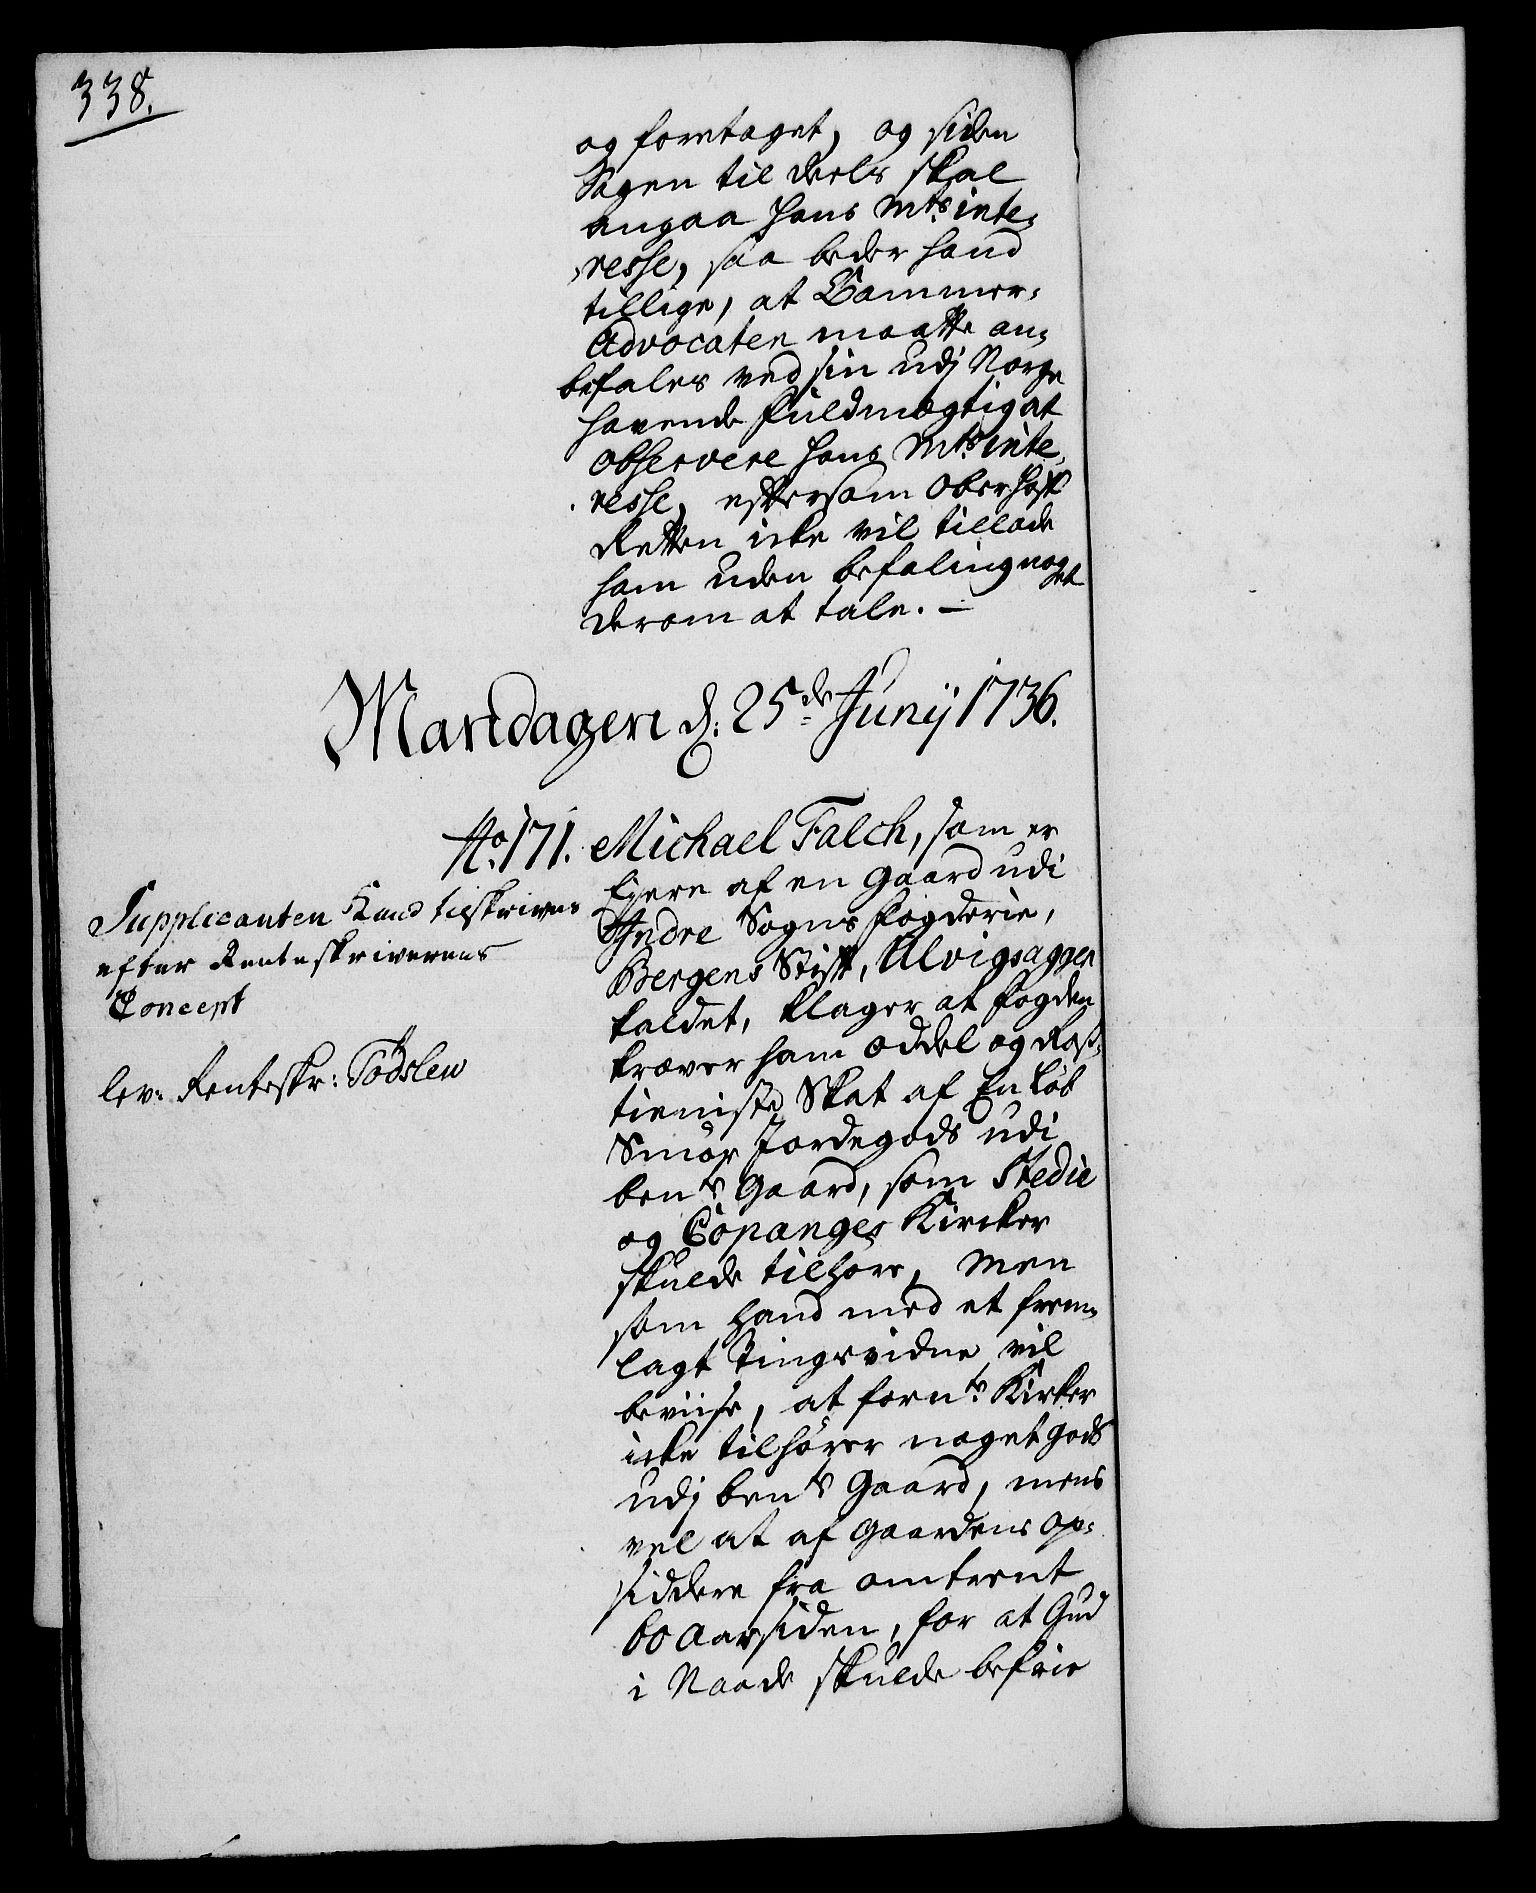 338.
og foretaget, og siden
Sagen til deels skal
angaa Hans Mts inte-
resse, saa beder hand
tillige, at Cammer-
Advocaten maatte an-
befales ved sin udj Norge
havende Fuldmægtig at
observere Hans Mts inte-
resse, eftersom Oberhof-
Retten icke vil tillade
ham uden befaling noget
derom at tale. —
Mandagen d. 25de Junij 1736.
No. 171. Michael Falch, som er
Ejere af en Gaard udi
Indre Sogns Fogderie,
Bergens Stift, Ulvigsaggen
kaldet, klager at Fogden
kræver ham Oddel og Ross-
tieniste Skat af En Løb
Smør Jordegods udi
bente Gaard, som Stedie
og Copanges Kircker
skulde tilhøre, men
som hand med et frem-
lagt Tingsvidne vil
beviise, at fornte Kirker
icke tilhører noget Gods
udj bente Gaard, mens
vel at af Gaardens Op-
siddere fra omtrent
60 Aar siden, for at Gud
i Naade skulde befrie
Supplicanten Kand tilskrives
efter Renteskriverens
Concept
lev: Renteskr: Tødslew